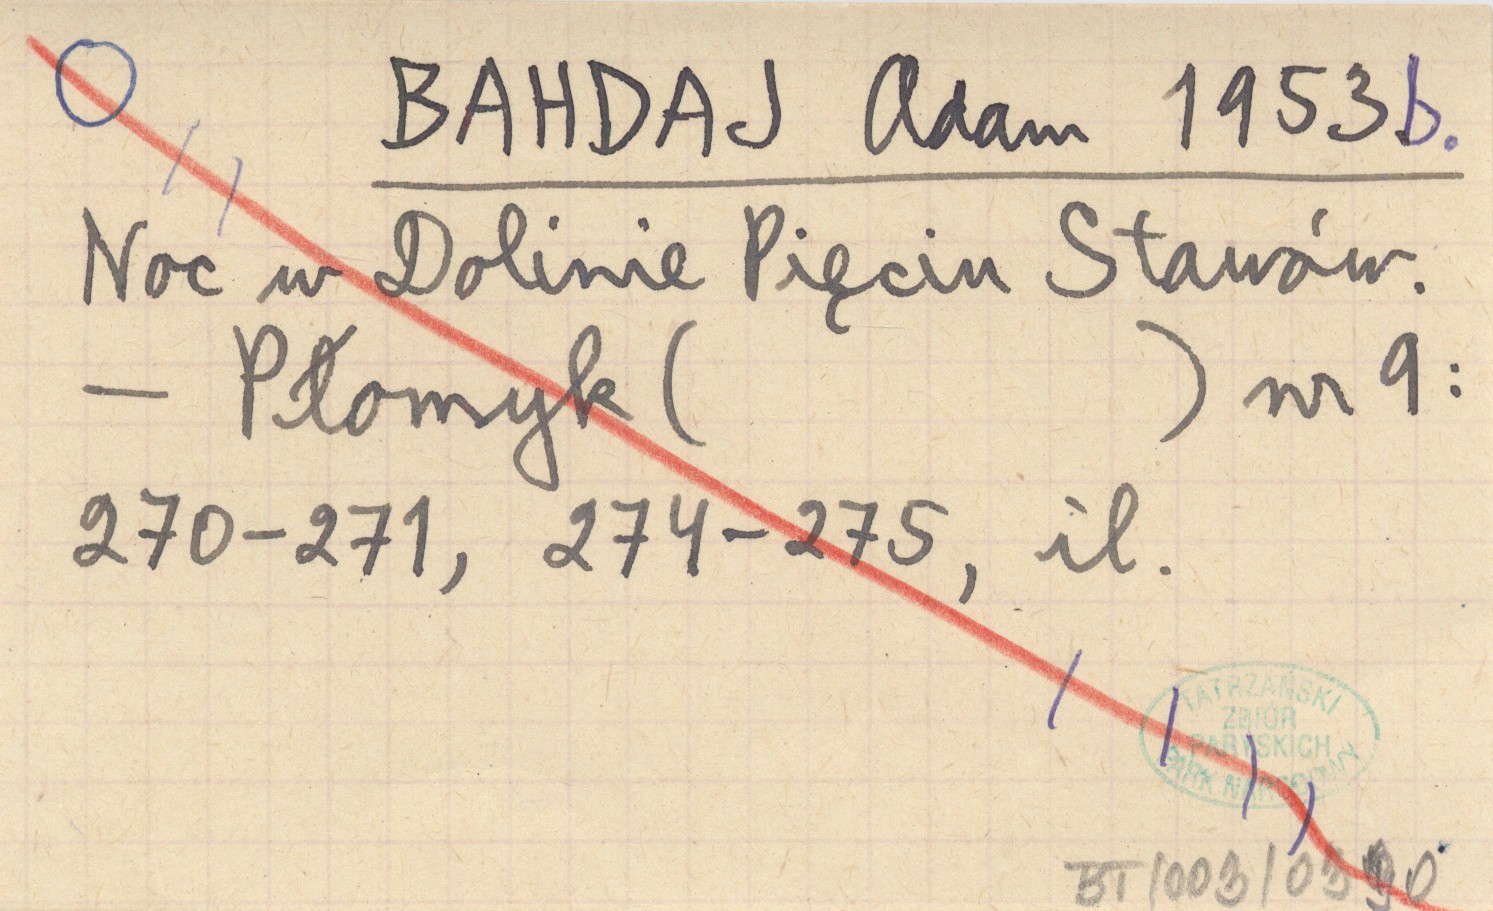 BAHDAJ Adam 1953b.
Noc w Dolinie Pięciu Stawów.
— Płomyk ( ) nr 9:
270-271, 274-275, il.
TATRZAŃSKI
ZBIÓR
PARYSKICH
PARK NARODOWY
BT/003/0390